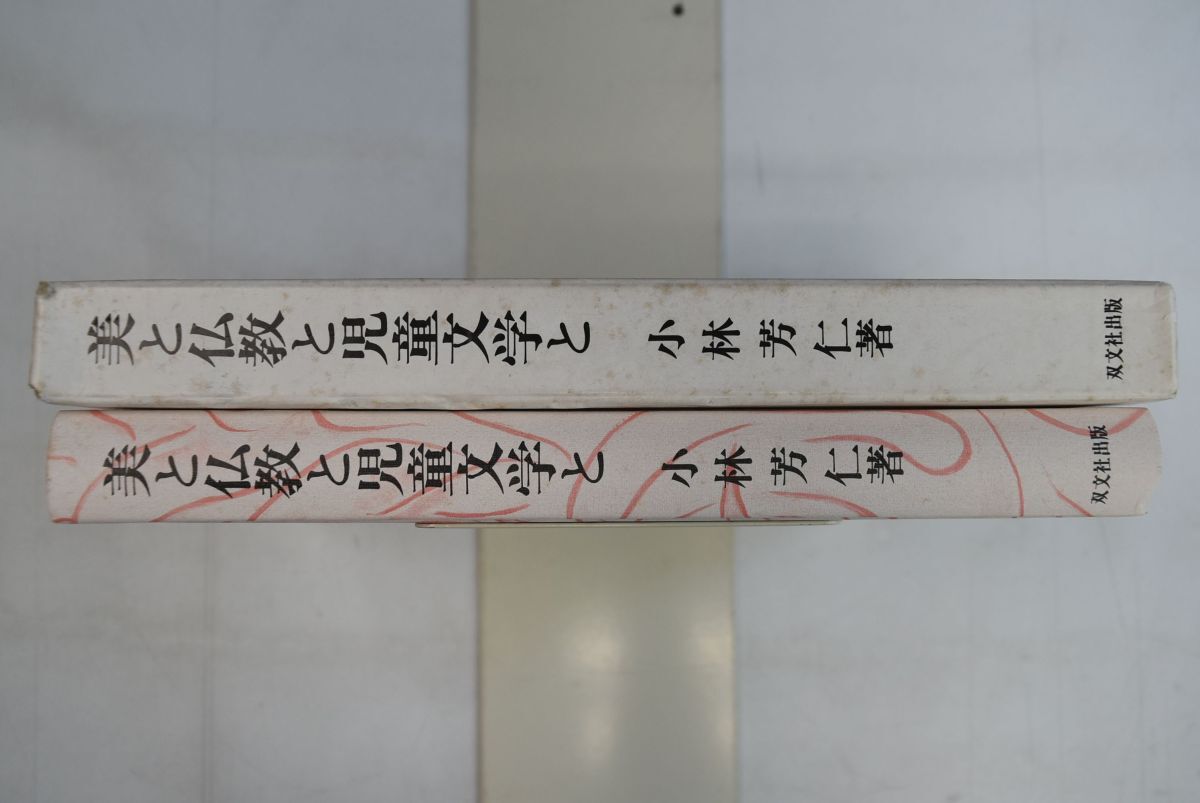 美と仏教と児童文学と 小林芳仁著 双文社出版
美と仏教と児童文学と 小林芳仁著 双文社出版